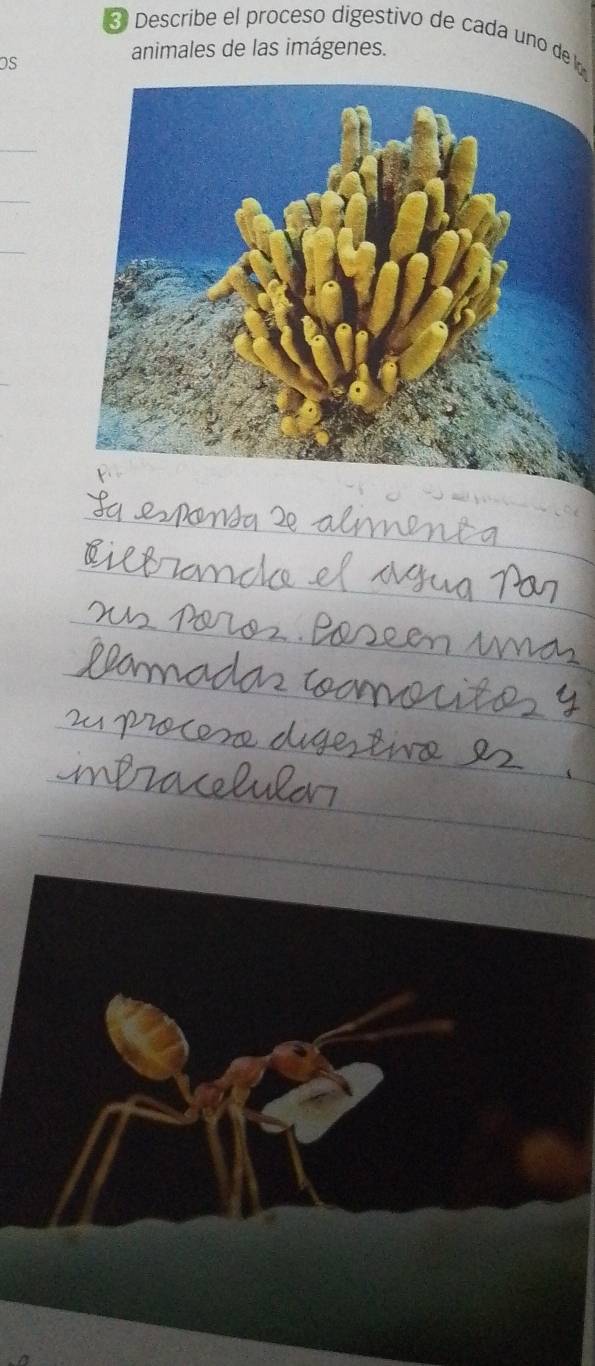 os
3 Describe el proceso digestivo de cada uno de los
animales de las imágenes.
La esponsa se alimenta
filtrando el agua por
sus poros. Poseen unas
llamadas coanocitos y
su proceso digestivo es
intracelular